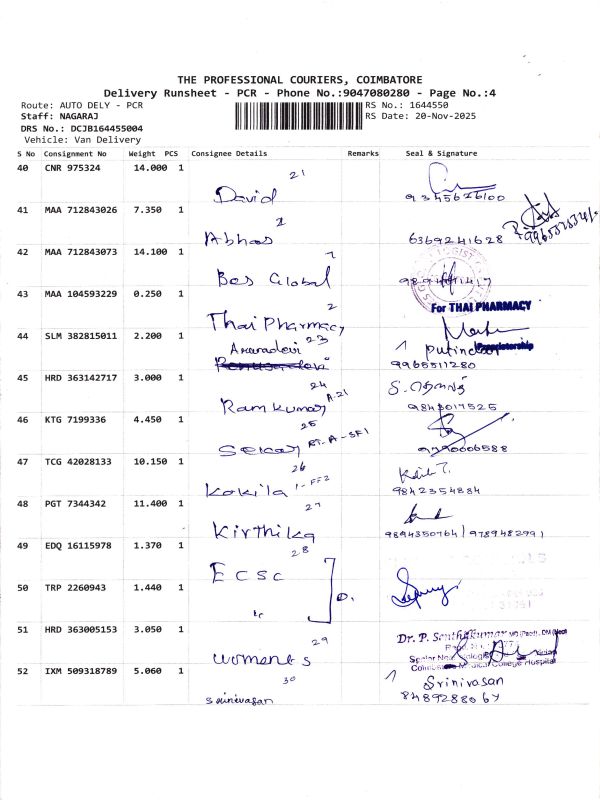 THE PROFESSIONAL COURIERS, COIMBATORE
Delivery Runsheet - PCR - Phone No.:9047080280 - Page No.:4
Route: AUTO DELY - PCR RS No.: 1644550
Staff: NAGARAJ RS Date: 20-Nov-2025
DRS No.: DCJB164455004
Vehicle: Van Delivery
S No Consignment No Weight PCS Consignee Details Remarks Seal & Signature
40 CNR 975324 14.000 1
21
David 9345626100
41 MAA 712843026 7.350 1
Abhas 6369241628
42 MAA 712843073 14.100 1
Bos Global
43 MAA 104593229 0.250 1
For THAI PHARMACY
2
Thai Pharmacy
44 SLM 382815011 2.200 1
23
Proprietorship
9965511280
45 HRD 363142717 3.000 1
24
Ramkumar A-21 9843017525
46 KTG 7199336 4.450 1
25
Sekar 9390006588
47 TCG 42028133 10.150 1
26
Kokila 1-FF2 9842354884
48 PGT 7344342 11.400 1
27
Kirthika 9894350764 / 9789482991
49 EDQ 16115978 1.370 1
28
ECSC
50 TRP 2260943 1.440 1
51 HRD 363005153 3.050 1
29
womens
Coimbatore Medical College Hospital
52 IXM 509318789 5.060 1
30
Srinivasan
srinivasan 8489288064